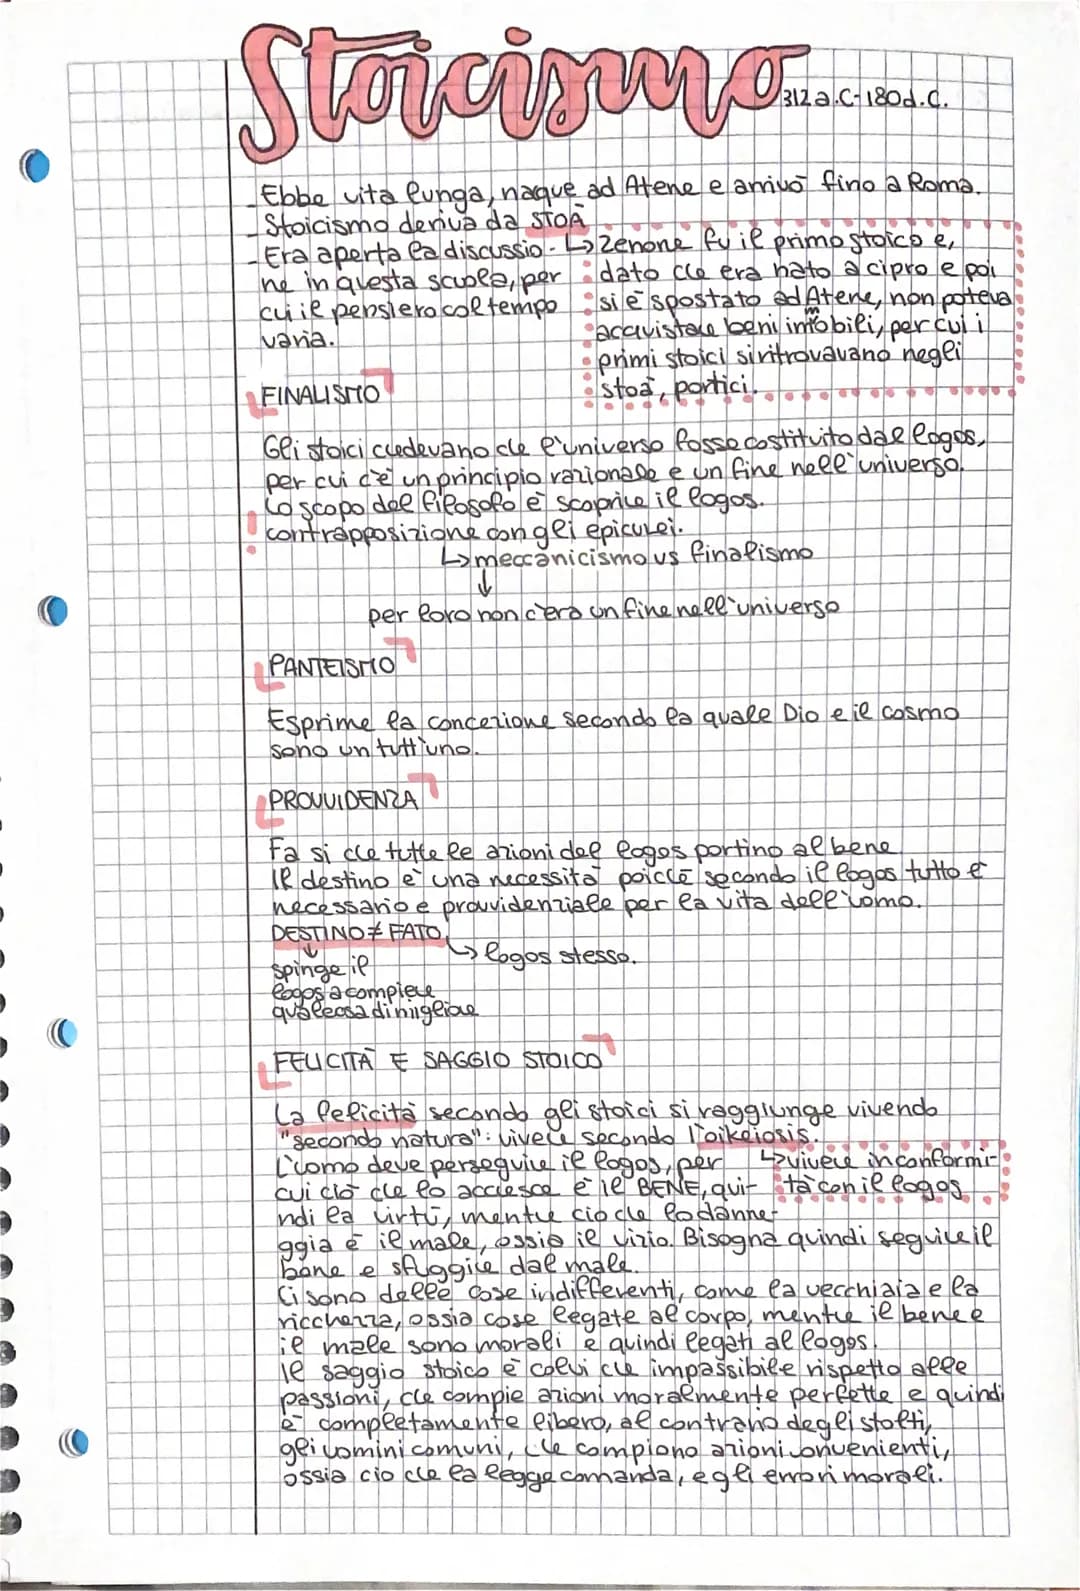 Stoicismo 312 a.C-180 d.C.
- Ebbe vita lunga, naque ad Atene e arrivò fino a Roma.
- Stoicismo deriva da STOÀ
↳ Zenone fu il primo stoico e,
dato che era nato a cipro e poi
si è spostato ad Atene, non poteva
acquistare beni immobili, per cui i
primi stoici si ritrovavano negli
stoà, portici.
- Era aperta la discussio-
ne in questa scuola, per
cui il pensiero col tempo
varia.
FINALISMO
Gli stoici credevano che l'universo fosse costituito dal logos,
per cui c'è un principio razionale e un fine nell'universo.
Lo scopo del filosofo è scoprire il logos.
! contrapposizione con gli epicurei.
↳ meccanicismo vs finalismo
↓
per loro non c'era un fine nell'universo
PANTEISMO
Esprime la concezione secondo la quale Dio e il cosmo
sono un tutt'uno.
PROVVIDENZA
Fa si che tutte le azioni del logos portino al bene.
Il destino è una necessità poichè secondo il logos tutto è
necessario e provvidenziale per la vita dell'uomo.
DESTINO ≠ FATO
↳ logos stesso.
↓
spinge il
logos a compiere
qualcosa di migliore
FELICITÀ E SAGGIO STOICO
La felicità secondo gli stoici si raggiunge vivendo
"secondo natura": vivere secondo l'oikeiosis.
↳ vivere in conformi-
tà con il logos
L'uomo deve perseguire il logos, per
cui ciò che lo accresce è il BENE, qui-
ndi la virtù, mentre cio che lo danne-
ggia è il male, ossia il vizio. Bisogna quindi seguire il
bene e sfuggire dal male.
Ci sono delle cose indifferenti, come la vecchiaia e la
ricchezza, ossia cose legate al corpo, mentre il bene e
il male sono morali e quindi legati al logos.
Il saggio stoico è colui che impassibile rispetto alle
passioni, che compie azioni moralmente perfette e quindi
è completamente libero, al contrario degli stolti,
gli uomini comuni, che compiono azioni convenienti,
ossia cio che la legge comanda, e gli errori morali.